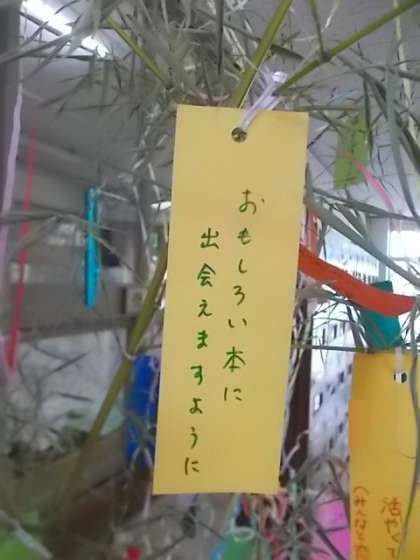 おもしろい本に
出会えますように
活やくす
(みんなと